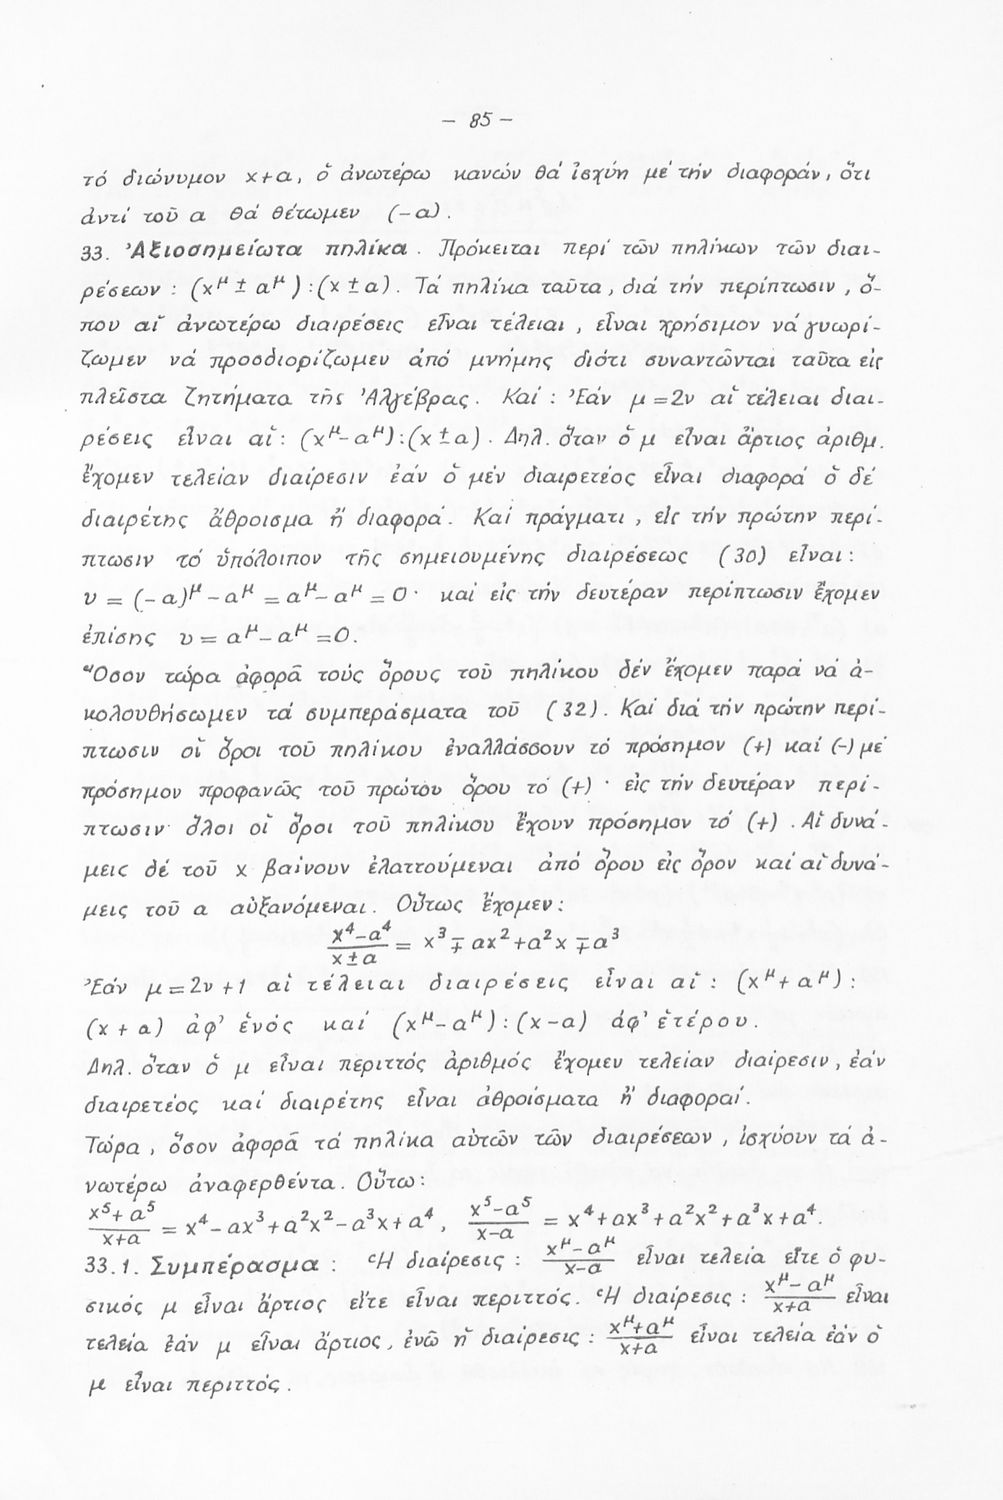 - 85 -
τό διώνυμον x+α, ὁ ἀνωτέρω κανών θά ἰσχύῃ μέ τήν διαφοράν, ὅτι
ἀντί τοῦ α θά θέτωμεν (-α).
33. Ἀξιοσημείωτα πηλίκα. Πρόκειται περί τῶν πηλίκων τῶν διαι-
ρέσεων : (x^μ ± α^μ):(x ± α). Τά πηλίκα ταῦτα, διά τήν περίπτωσιν, ὅ-
που αἱ ἀνωτέρω διαιρέσεις εἶναι τέλειαι, εἶναι χρήσιμον νά γνωρί-
ζωμεν νά προσδιορίζωμεν ἀπό μνήμης διότι συναντῶνται ταῦτα εἰς
πλεῖστα ζητήματα τῆς Ἀλγέβρας. Καί : Ἐάν μ=2ν αἱ τέλειαι διαι-
ρέσεις εἶναι αἱ: (x^μ-α^μ):(x±α). Δηλ. ὅταν ὁ μ εἶναι ἄρτιος ἀριθμ.
ἔχομεν τελείαν διαίρεσιν ἐάν ὁ μέν διαιρετέος εἶναι διαφορά ὁ δέ
διαιρέτης ἄθροισμα ἤ διαφορά. Καί πράγματι, εἰς τήν πρώτην περί-
πτωσιν τό ὑπόλοιπον τῆς σημειουμένης διαιρέσεως (30) εἶναι:
υ = (-α)^μ - α^μ = α^μ - α^μ = 0· καί εἰς τήν δευτέραν περίπτωσιν ἔχομεν
ἐπίσης υ = α^μ - α^μ = 0.
Ὅσον τώρα ἀφορᾶ τούς ὅρους τοῦ πηλίκου δέν ἔχομεν παρά νά ἀ-
κολουθήσωμεν τά συμπεράσματα τοῦ (32). Καί διά τήν πρώτην περί-
πτωσιν οἱ ὅροι τοῦ πηλίκου ἐναλλάσσουν τό πρόσημον (+) καί (-) μέ
πρόσημον προφανῶς τοῦ πρώτου ὅρου τό (+) · εἰς τήν δευτέραν περί-
πτωσιν ὅλοι οἱ ὅροι τοῦ πηλίκου ἔχουν πρόσημον τό (+). Αἱ δυνά-
μεις δέ τοῦ x βαίνουν ἐλαττούμεναι ἀπό ὅρου εἰς ὅρον καί αἱ δυνά-
μεις τοῦ α αὐξανόμεναι. Οὕτως ἔχομεν:
(x⁴-α⁴)/(x±α) = x³ ∓ αx² + α²x ∓ α³
Ἐάν μ=2ν+1 αἱ τέλειαι διαιρέσεις εἶναι αἱ : (x^μ+α^μ):
(x+α) ἀφ' ἑνός καί (x^μ-α^μ):(x-α) ἀφ' ἑτέρου.
Δηλ. ὅταν ὁ μ εἶναι περιττός ἀριθμός ἔχομεν τελείαν διαίρεσιν, ἐάν
διαιρετέος καί διαιρέτης εἶναι ἀθροίσματα ἤ διαφοραί.
Τώρα, ὅσον ἀφορᾶ τά πηλίκα αὐτῶν τῶν διαιρέσεων, ἰσχύουν τά ἀ-
νωτέρω ἀναφερθέντα. Οὕτω:
(x⁵+α⁵)/(x+α) = x⁴-αx³+α²x²-α³x+α⁴, (x⁵-α⁵)/(x-α) = x⁴+αx³+α²x²+α³x+α⁴.
33.1. Συμπέρασμα : Ἡ διαίρεσις : (x^μ-α^μ)/(x-α) εἶναι τελεία εἴτε ὁ φυ-
σικός μ εἶναι ἄρτιος εἴτε εἶναι περιττός. Ἡ διαίρεσις : (x^μ-α^μ)/(x+α) εἶναι
τελεία ἐάν μ εἶναι ἄρτιος, ἐνῶ ἡ διαίρεσις : (x^μ+α^μ)/(x+α) εἶναι τελεία ἐάν ὁ
μ εἶναι περιττός.